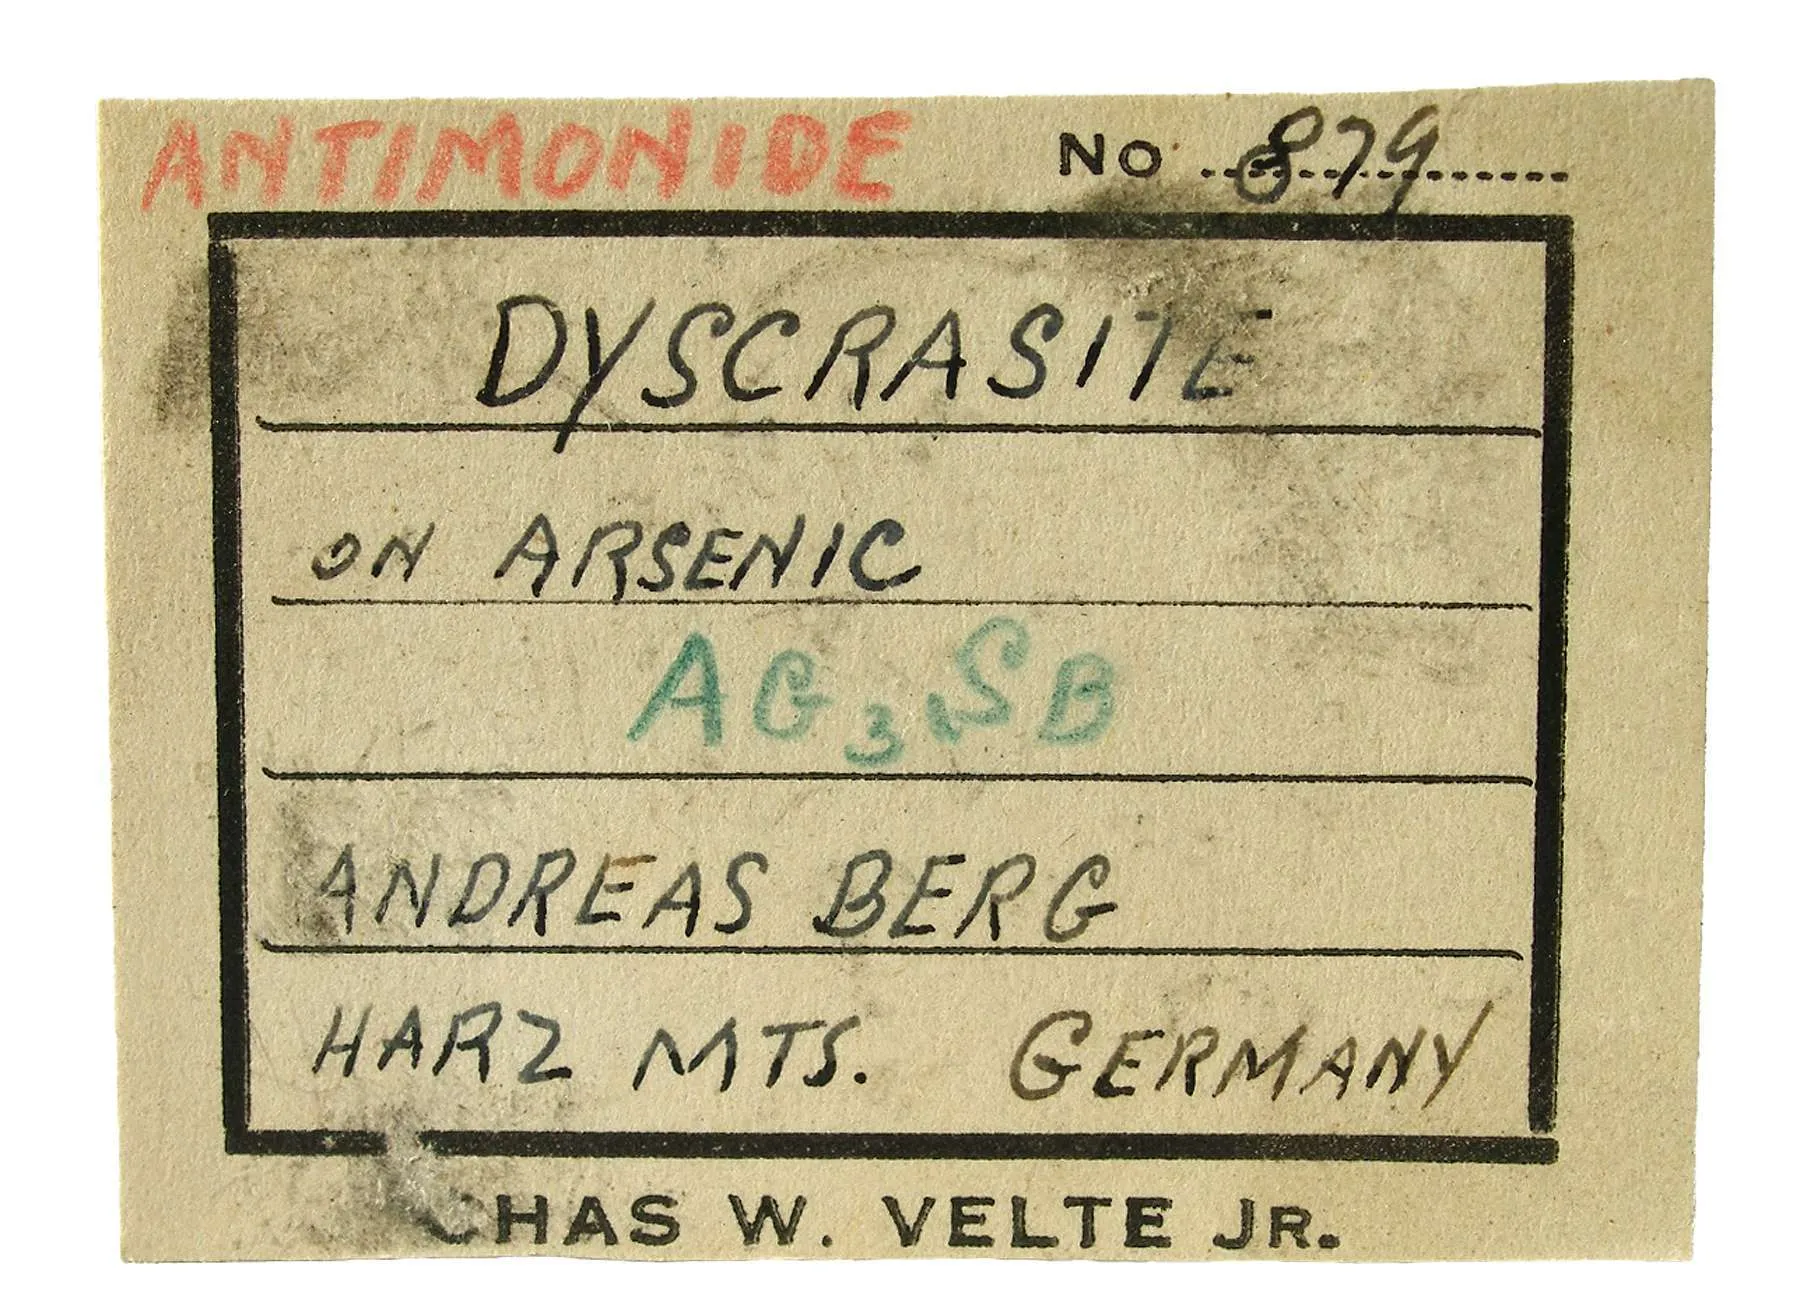 ANTIMONIDE No 879
DYSCRASITE
ON ARSENIC
AG3SB
ANDREAS BERG
HARZ MTS. GERMANY
CHAS W. VELTE JR.